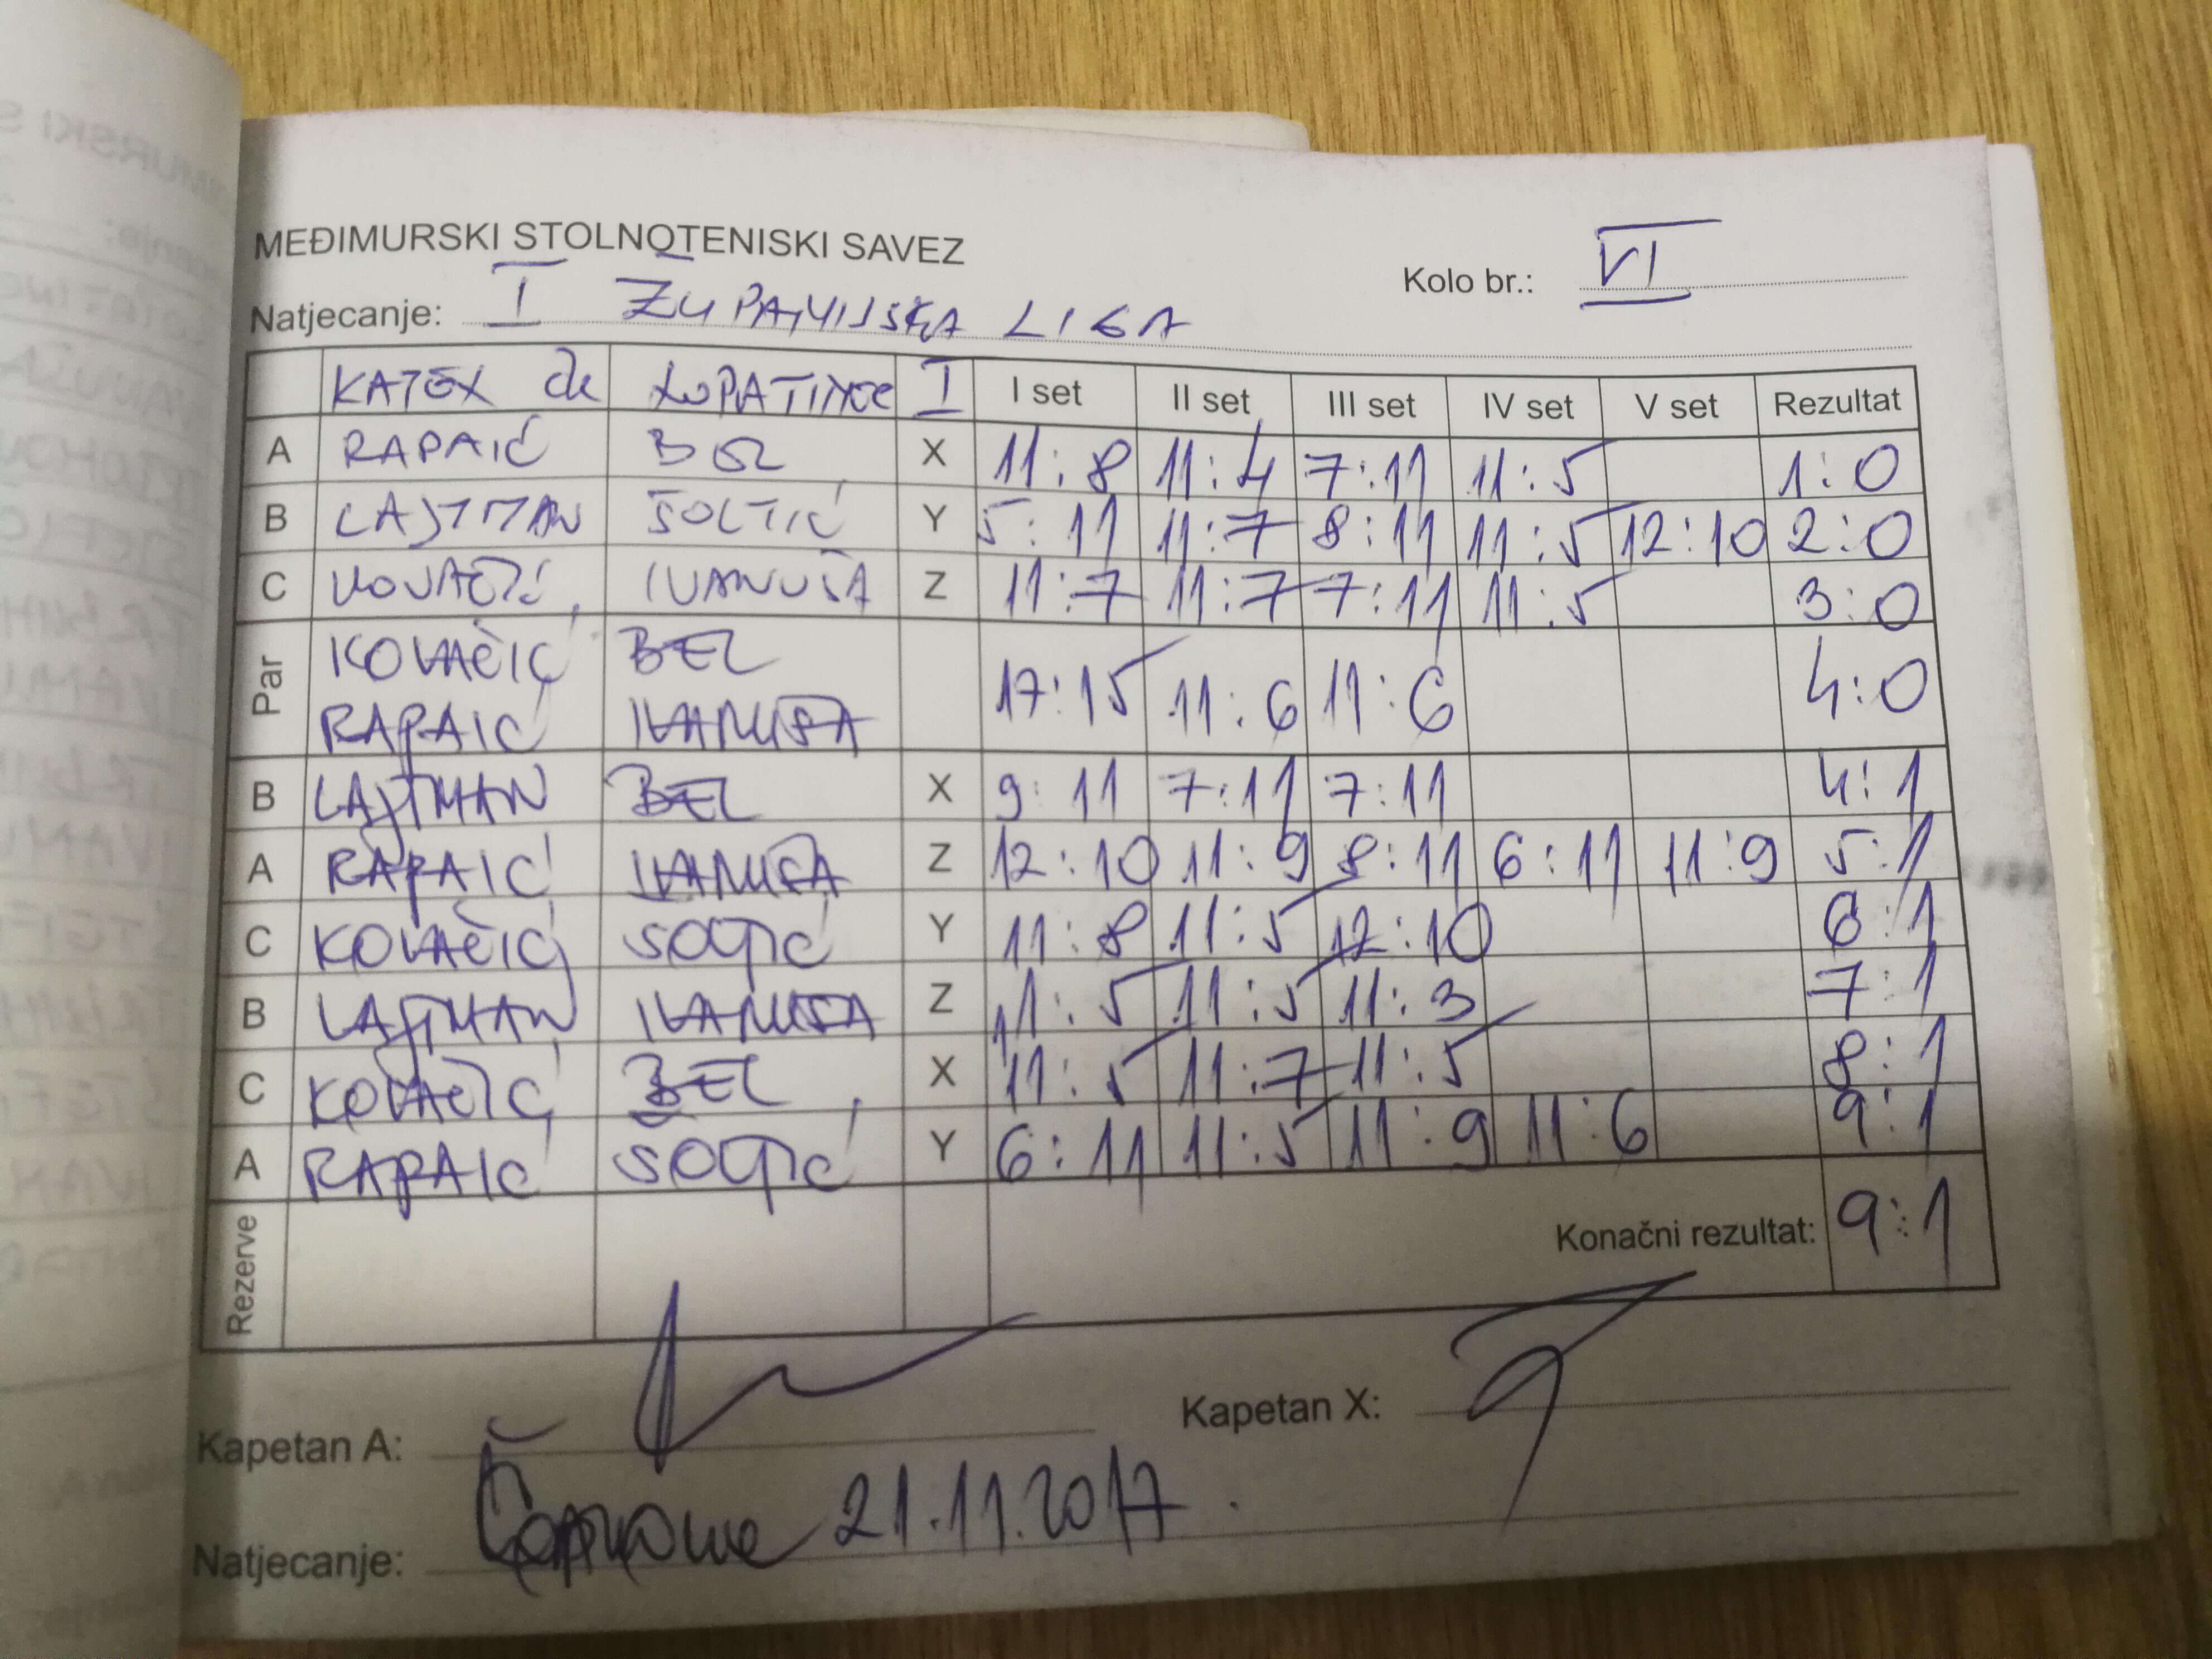 MEĐIMURSKI STOLNOTENISKI SAVEZ
Kolo br.: VI
Natjecanje: I ŽUPANIJSKA LIGA
KATEX ČK LOPATINEC I I set II set III set IV set V set Rezultat
A RAPAIĆ BEL X 11:8 11:4 7:11 11:5 1:0
B LAJTMAN ŠOLTIĆ Y 5:11 11:7 8:11 11:5 12:10 2:0
C KOVAČIĆ IVANUŠA Z 11:7 11:7 7:11 11:5 3:0
Par KOVAČIĆ BEL 17:15 11:6 11:6 4:0
RAPAIĆ IVANUŠA
B LAJTMAN BEL X 9:11 7:11 7:11 4:1
A RAPAIĆ IVANUŠA Z 12:10 11:9 8:11 6:11 11:9 5:1
C KOVAČIĆ SOLTIĆ Y 11:8 11:5 12:10 6:1
B LAJTMAN IVANUŠA Z 11:5 11:5 11:3 7:1
C KOVAČIĆ BEL X 11:5 11:7 11:5 8:1
A RAPAIĆ SOLTIĆ Y 6:11 11:5 11:9 11:6 9:1
Rezerve Konačni rezultat: 9:1
Kapetan A: Kapetan X:
Natjecanje: 21.11.2017.